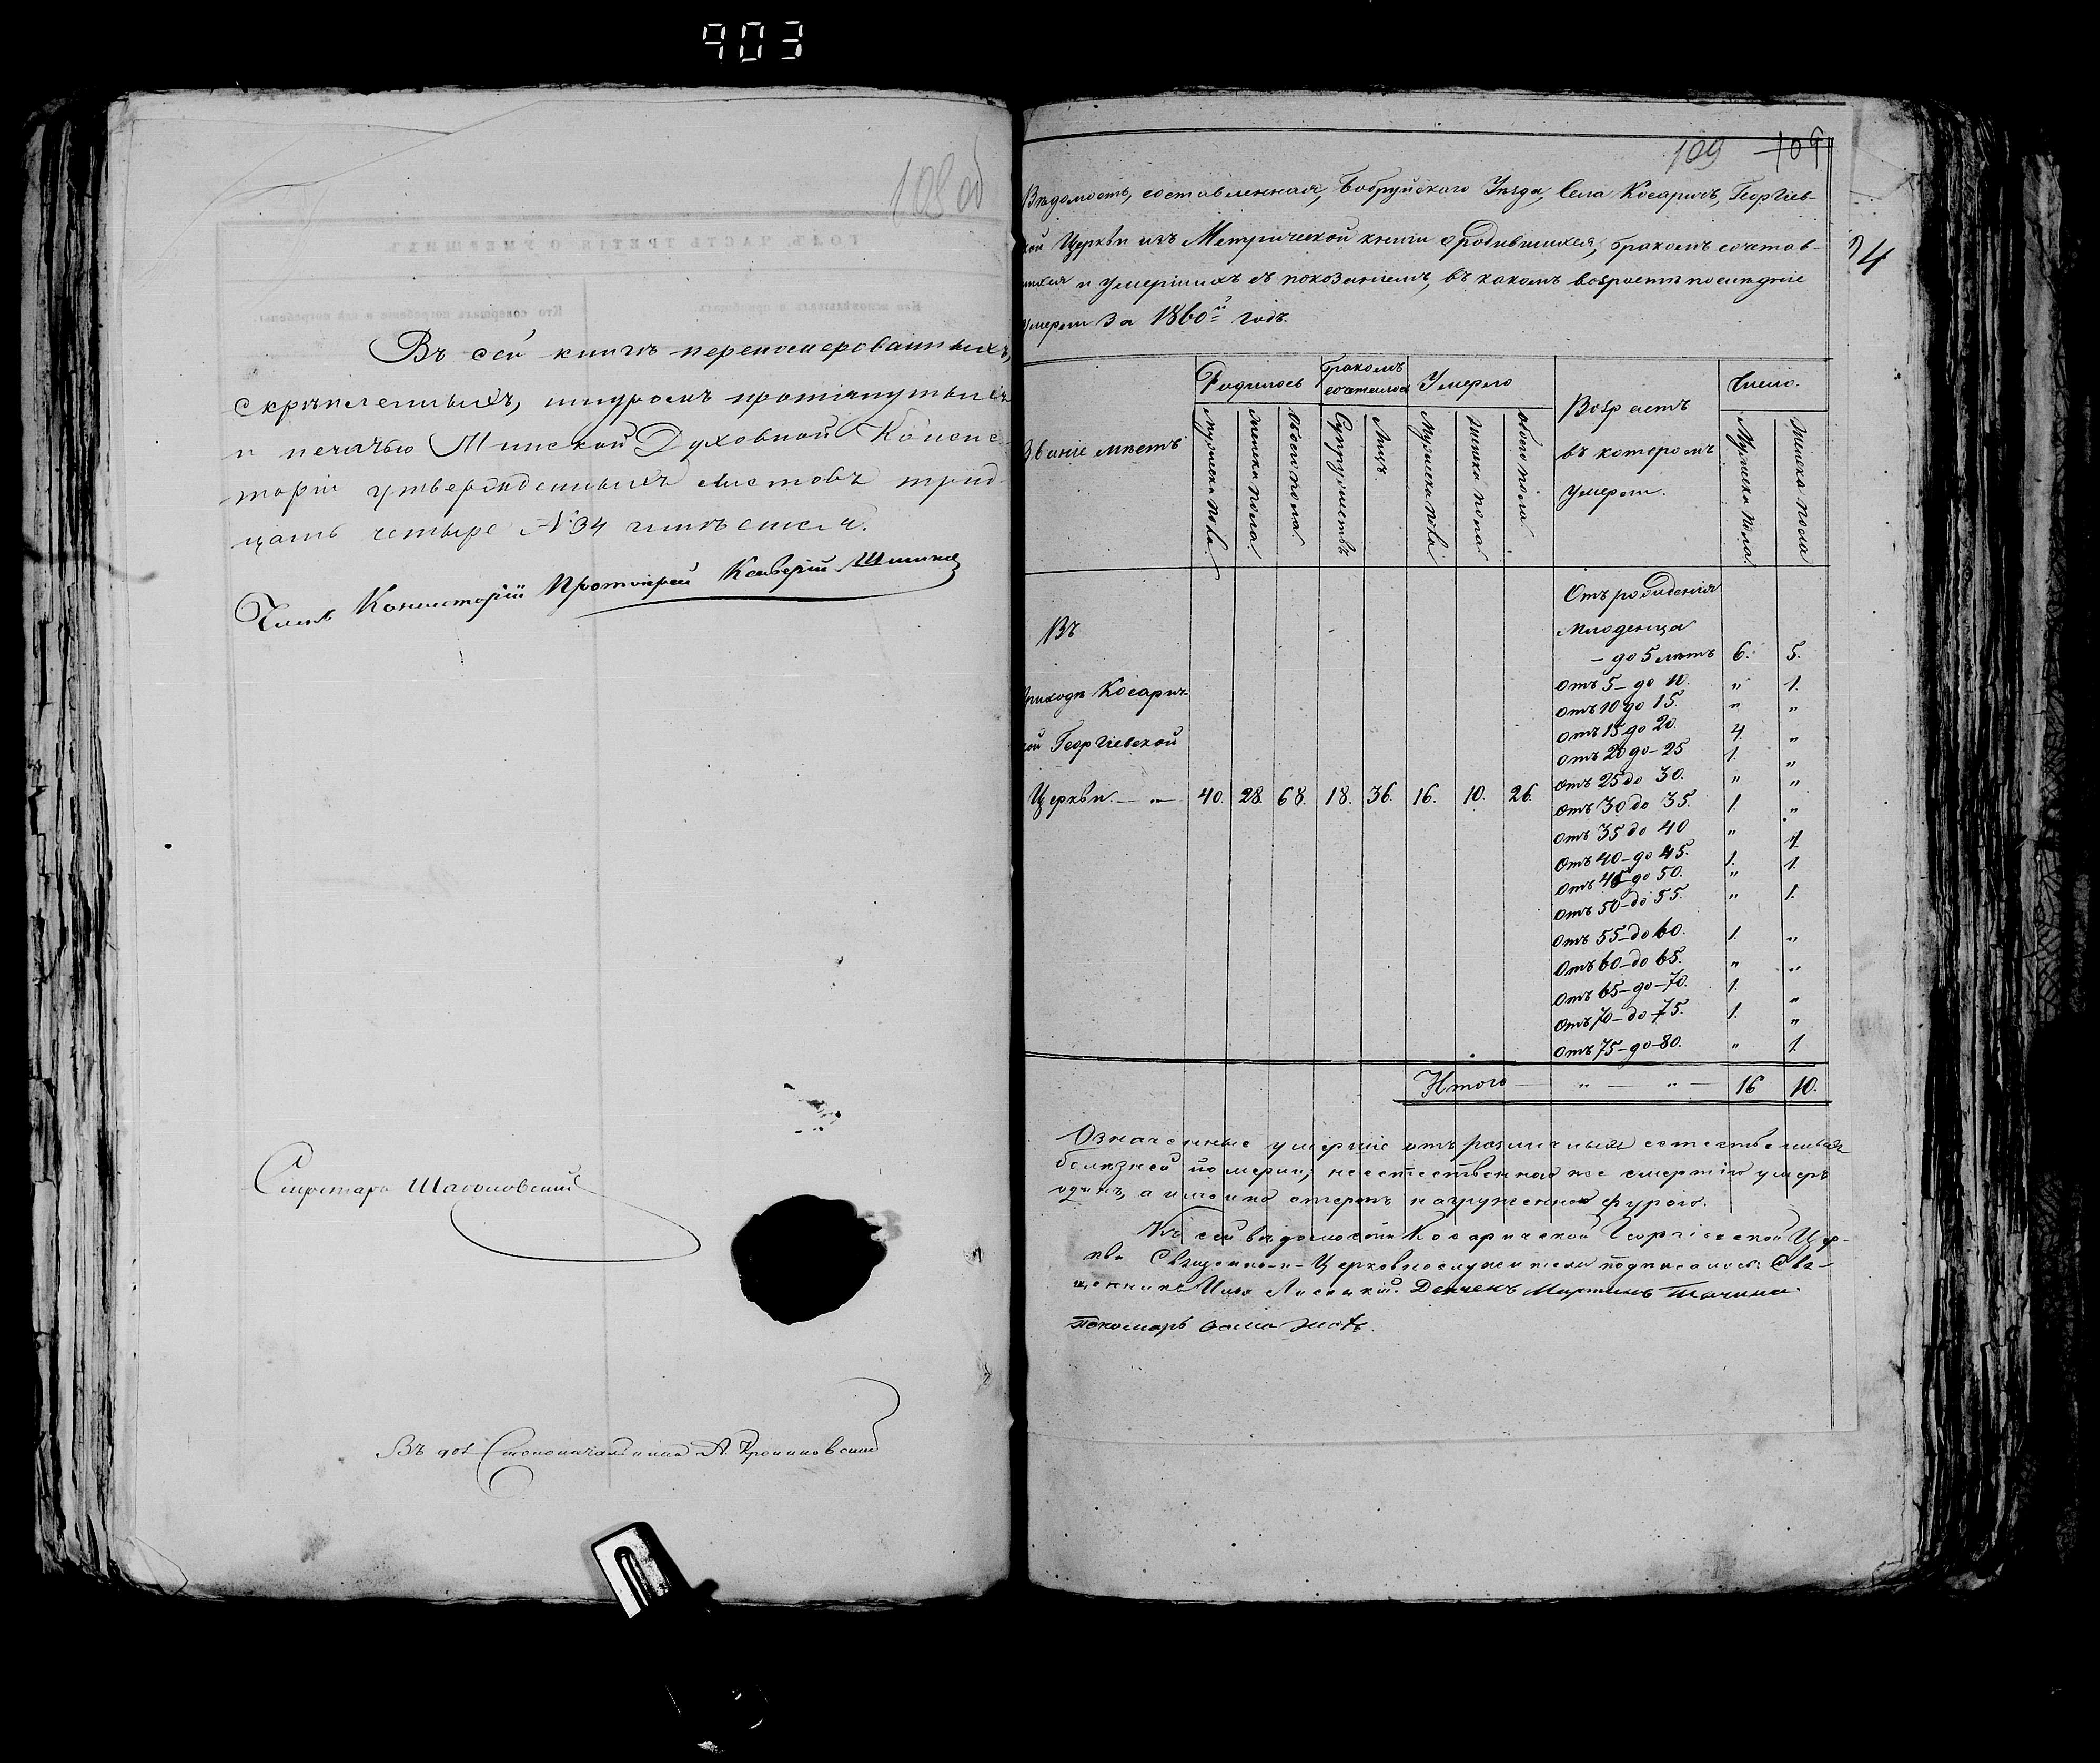 903
108 об
Въ сей книгѣ перенумерованныхъ,
скрѣпленныхъ, шнуромъ протянутыхъ
и печатью Минской Духовной Консис-
торіи утвержденныхъ листовъ трид-
цать четыре №34 числомъ.
Членъ Консисторіи Протоіерей
Секретарь
Въ дол Столоначальника А.
109 109
34
Вѣдомость, составленная, Бобруйскаго Уѣзда, Села Косаричъ, Георгіев-
кой Церкви изъ Метрической книги о родившихся, бракомъ сочетав-
шихся и умершихъ съ показаніемъ, въ какомъ возрастѣ послѣдніе
умерли За 1860й годъ.
Званіе мѣстъ
Родилось
Мужеска пола.
Женска пола.
Обоего пола.
Бракомъ сочеталось
Супружествъ
Лицъ.
Умерло
Мужеска пола
Женска пола
Обоего пола.
Возрастъ
въ которомъ
умерли.
Число.
Мужеска пола.
Женска пола
Въ
Приходѣ Косарич-
кой Георгіевской
Церкви. — „ — 40. 28. 68. 18. 36. 16. 10. 26.
Отъ рожденія
Младенца
- до 5 лѣтъ 6. 5.
Отъ 5 - до 10. „ 1.
Отъ 10 до 15. „ „
Отъ 15 до 20. 4. „
Отъ 20 до - 25 1. „
Отъ 25 до 30. „ „
Отъ 30 до 35. 1. „
Отъ 35 до 40 „ 1.
Отъ 40 - до 45. 1. 1.
Отъ 45 - до 50. „
Отъ 50 - до 55. „ 1.
Отъ 55 - до 60. 1. „
Отъ 60 - до 65. „ „
Отъ 65 - до - 70. 1. „
Отъ 70 - до - 75. 1. „
Отъ 75 - до - 80. „ 1.
Итого — „ — „ — 16 10.
Означенные умершіе отъ различныхъ естественныхъ
болѣзней померли, неестественною же смертію умеръ
одинъ, а именно нагруженною фурою.
Къ сей вѣдомости Косаричской Георгіевской Цер-
кви Священно-и-Церковнослужители подписались: Свя-
щенникъ Дьячекъ Мартинъ
Пономарь